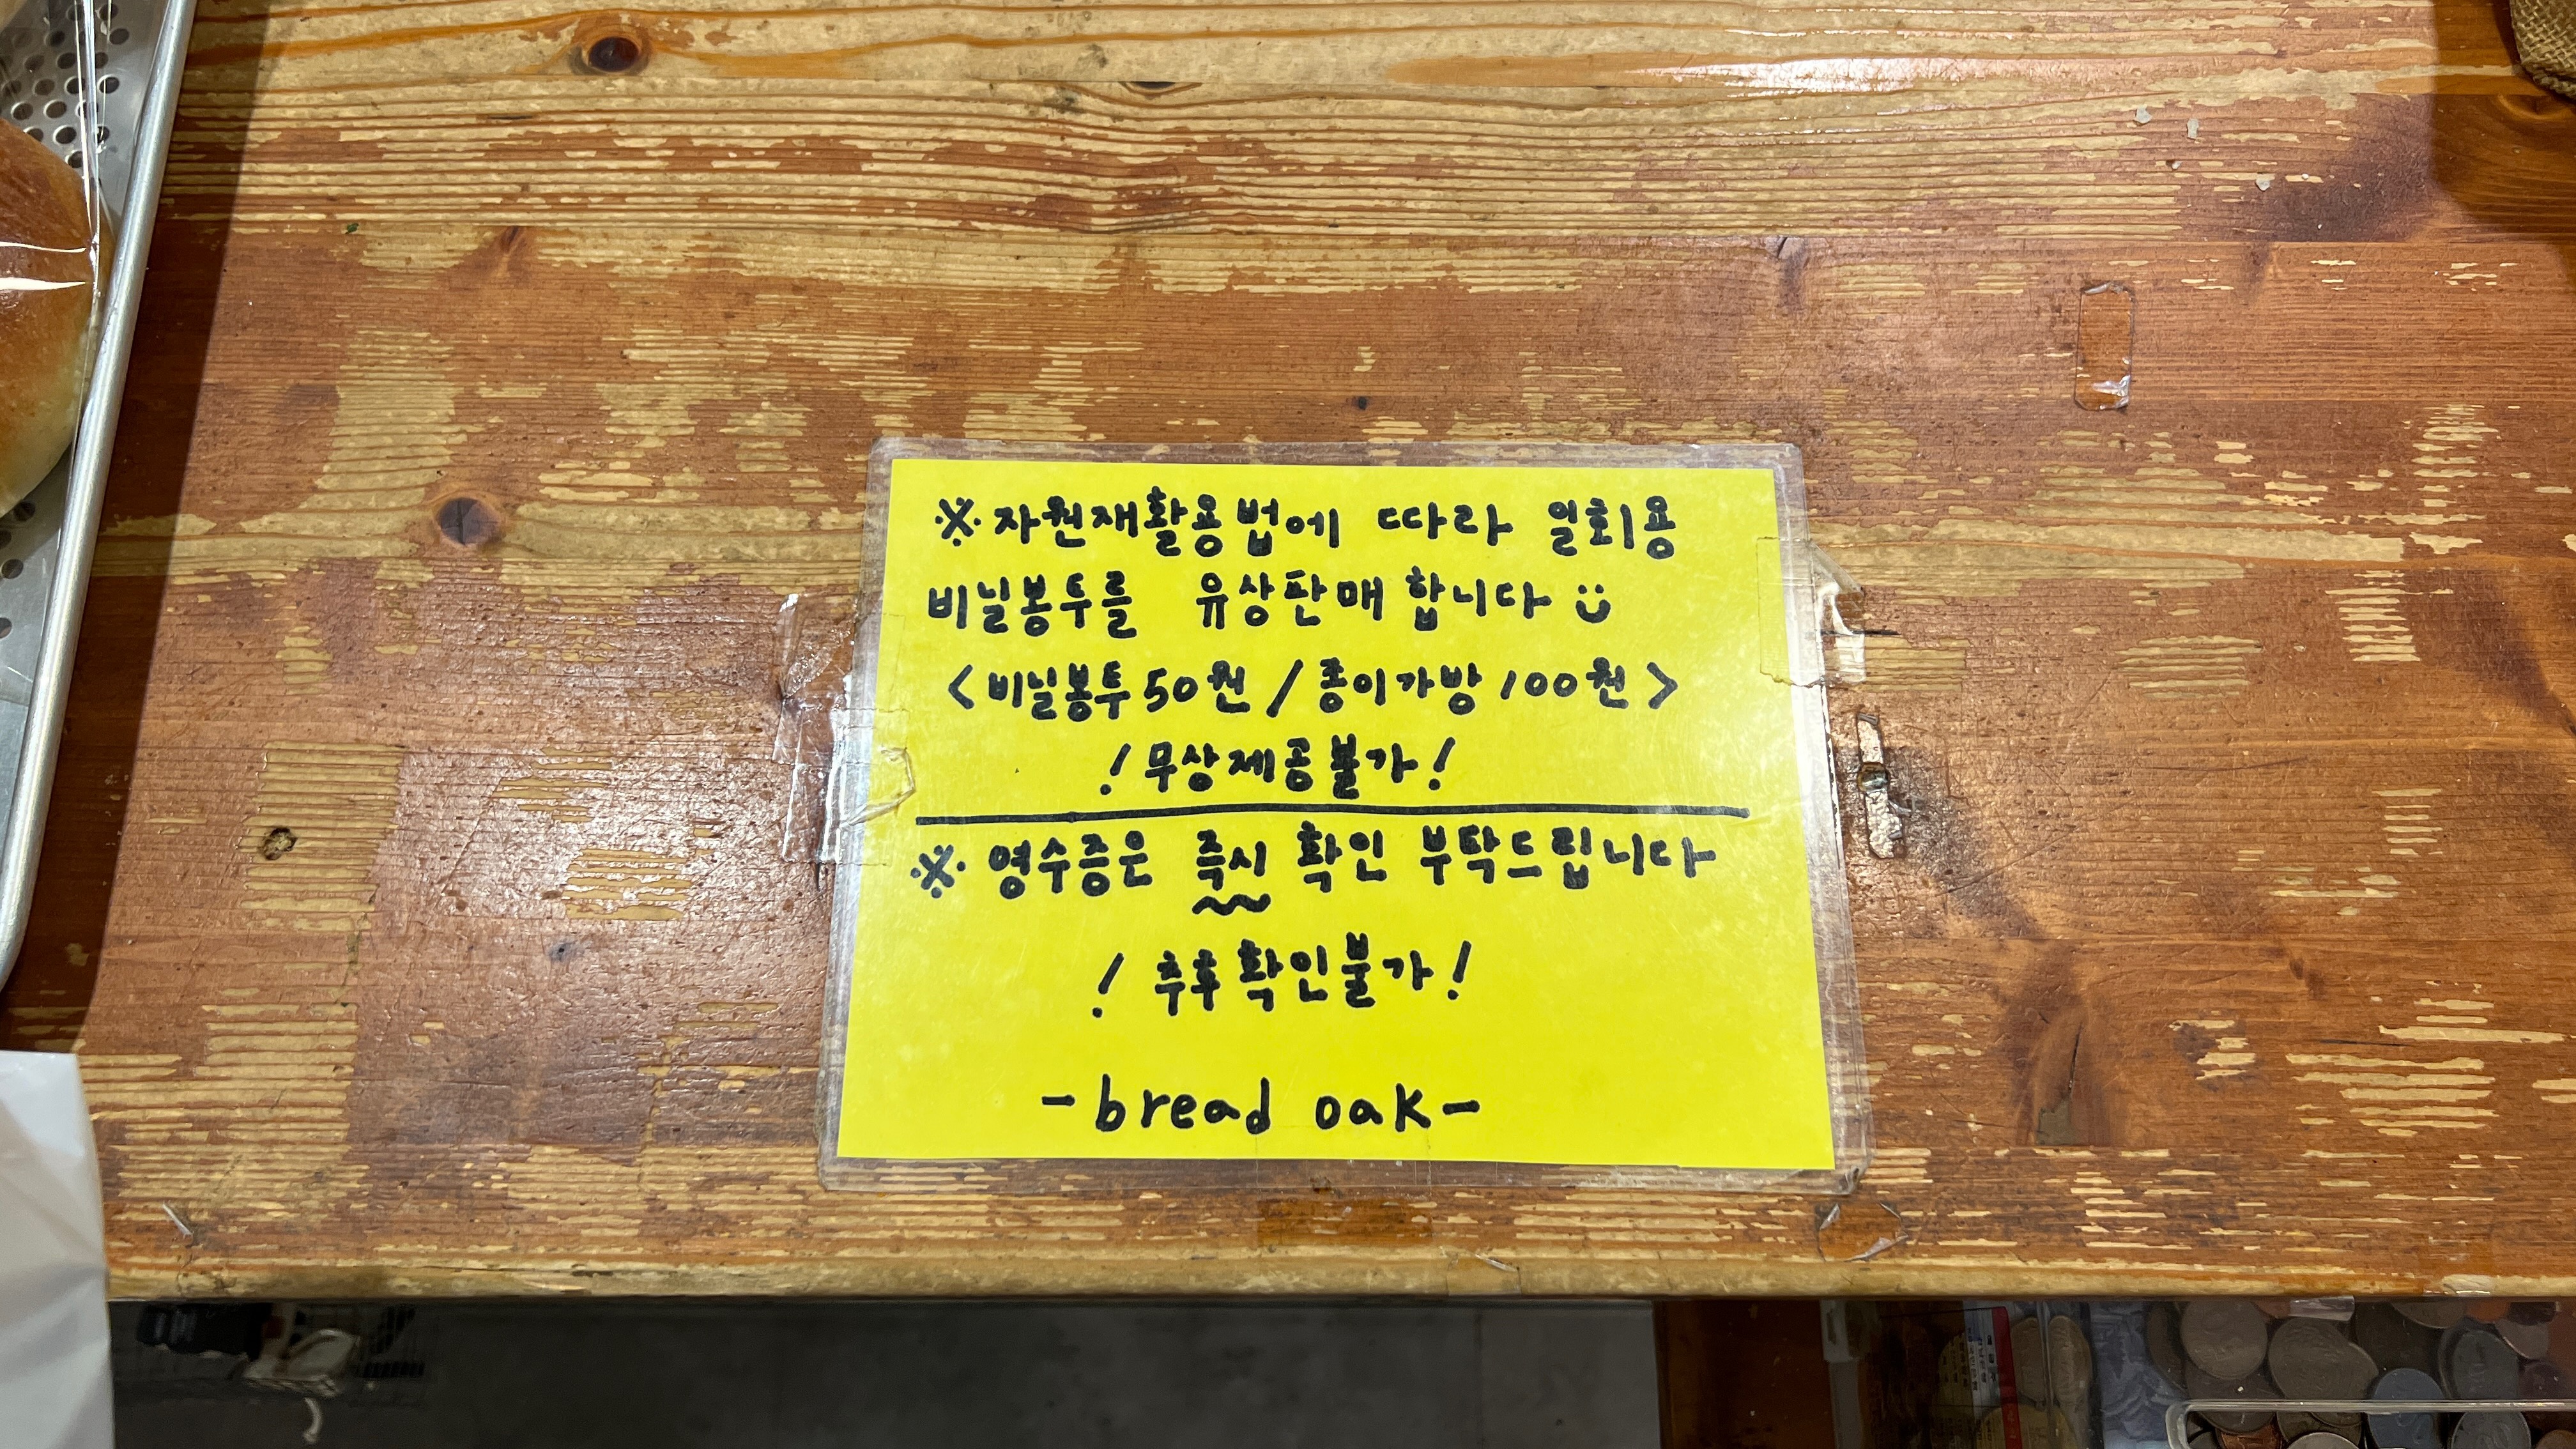 ※자원재활용법에 따라 일회용
비닐봉투를 유상판매합니다
<비닐봉투50원/종이가방100원>
!무상제공불가!
※ 영수증은 즉시 확인 부탁드립니다
! 추후확인불가!
-bread oak-